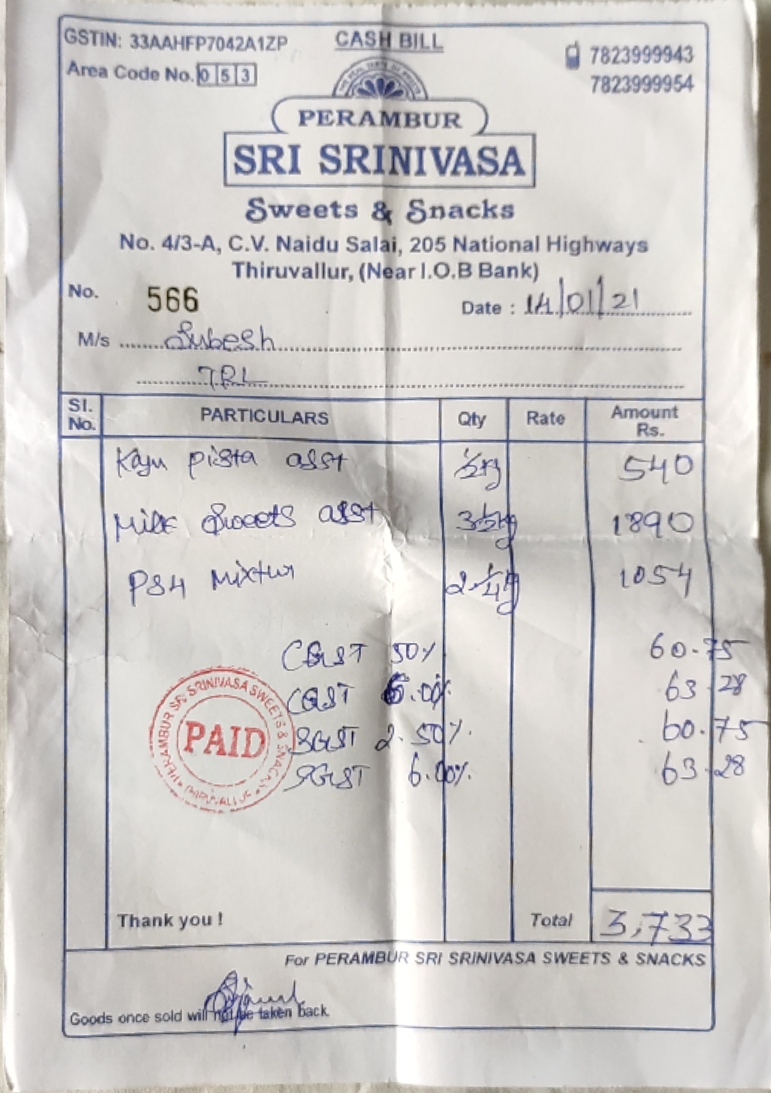 GSTIN: 33AAHFP7042A1ZP CASH BILL 7823999943
Area Code No. 0 5 3 7823999954
PERAMBUR
SRI SRINIVASA
Sweets & Snacks
No. 4/3-A, C.V. Naidu Salai, 205 National Highways
Thiruvallur, (Near I.O.B Bank)
No. 566 Date : 14/01/21
M/s Subesh
TRL
Sl. No. PARTICULARS Qty Rate Amount Rs.
Kaju pista asst 1/2kg 540
Milk Sweets asst 3 1/2kg 1890
PS4 Mixtur 2 1/4kg 1054
CGST 50% 60.75
CGST 6.00% 63.28
SGST 2.50% 60.75
SGST 6.00% 63.28
PERAMBUR SRI SRINIVASA SWEETS & SNACKS
PAID
THIRUVALLUR
Thank you ! Total 3,733
For PERAMBUR SRI SRINIVASA SWEETS & SNACKS
Goods once sold will not be taken back